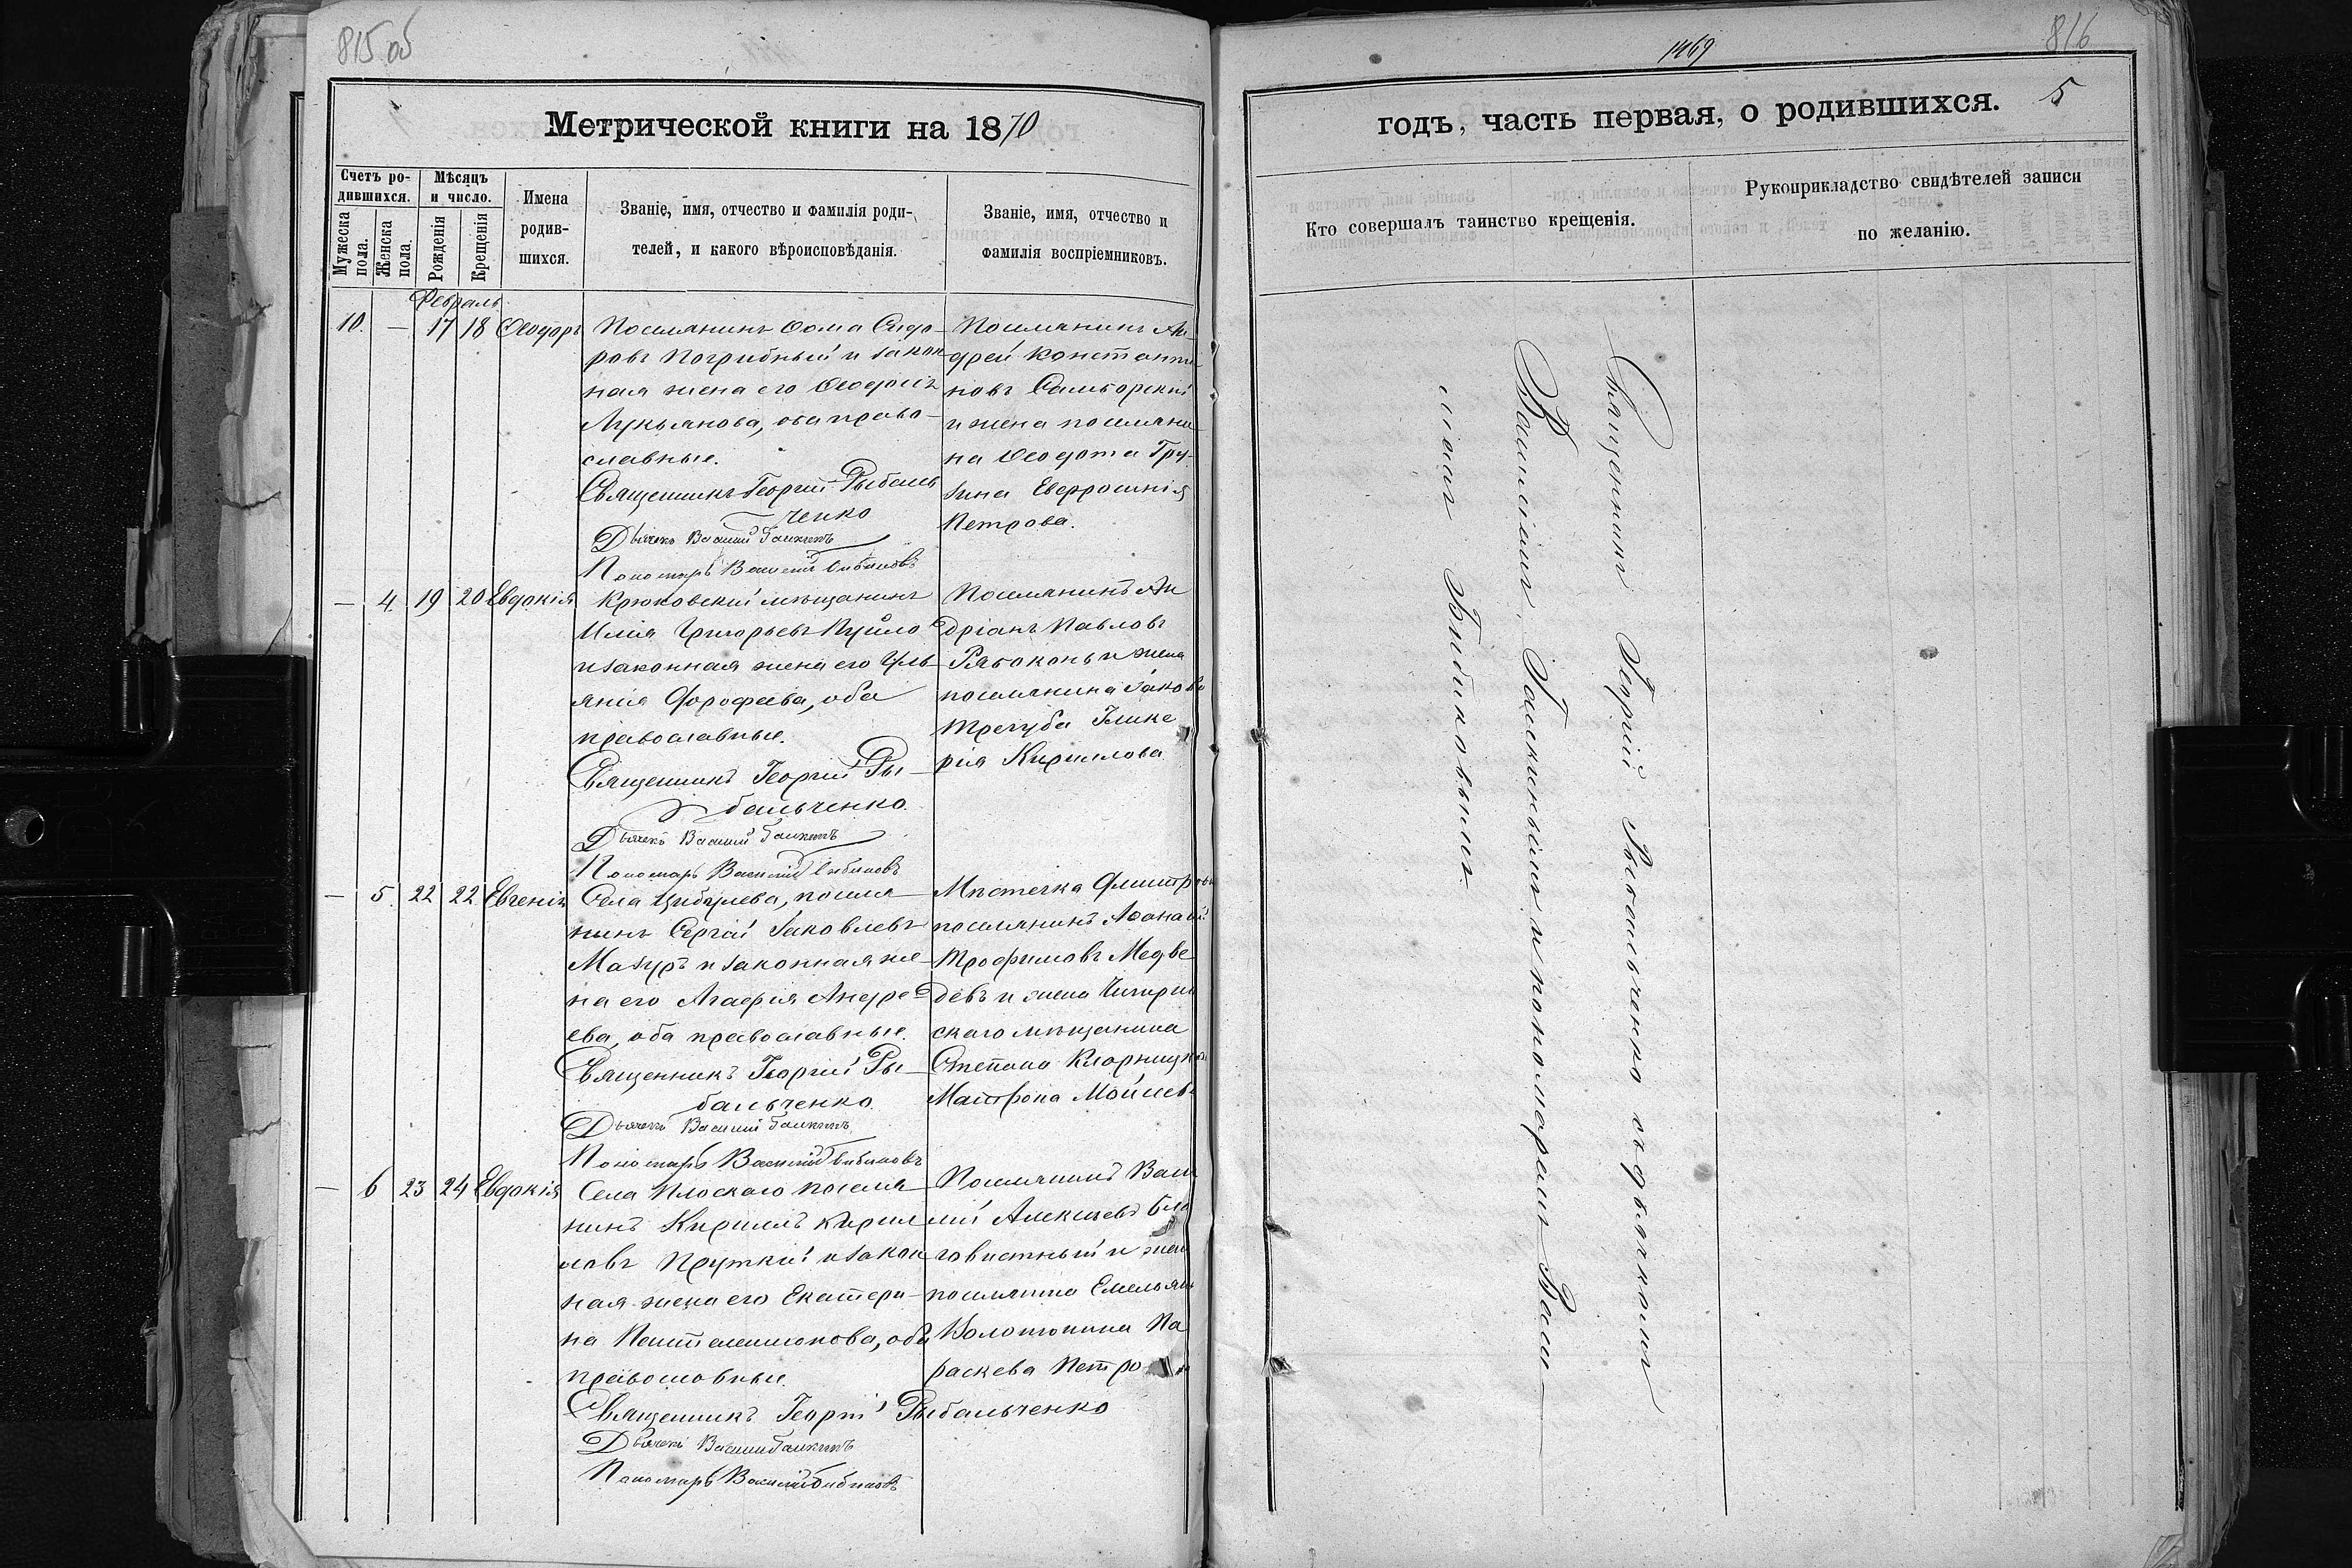 815 об
Метрической книги на 1870
Счетъ ро-
дившихся.
Мѣсяцъ
и число.
Мужеска
пола.
Женска
пола.
Рожденія
Крещенія
Имена
родив-
шихся.
Званіе, имя, отчество и фамилія роди-
телей, и какого вѣроисповѣданія.
Званіе, имя, отчество и
фамилія воспріемниковъ.
Февраль
10. — 17 18 Ѳеодоръ
Поселянинъ Ѳома Сидо-
ровъ Погрибный и закон
ная жена его Ѳеодосія
Лукьянова, оба право-
славные.
Священникъ Георгій Рыбаль
ченко
Дьячекъ Василій
Пономарь Василій Бибиковъ
Поселянинъ Ан
дрей Константи
новъ Самборскій
и жена поселяни
на Ѳеодота Гру-
зина Евфросинія
Петрова.
— 4. 19 20 Евдокія
Крюковскій мѣщанинъ
Илія Григорьевъ Пуйло
и законная жена его Уль-
янія Дорофеева, оба
православные.
Священникъ Георгій Ры-
бальченко.
Дьячекъ Василій
Пономарь Василій Бибиковъ
Поселянинъ Ан
дріанъ Павловъ
Рябоконь и жена
поселянина Іакова
Трегуба Глике
рія Кирилова
— 5. 22 22 Евгенія
Села Цибулева, поселя-
нинъ Сергій Іаковлевъ
Мазуръ и законная же-
на его Агафія Андре-
ева, оба православные.
Священникъ Георгій Ры-
бальченко.
Дьячекъ Василій
Пономарь Василій Бибиковъ
Мѣстечка
поселянинъ Аѳанасій
Трофимовъ Медве
девъ и жена Чигирин
скаго мѣщанина
Степана
Матрона Мойсеев
— 6 23 24 Евдокія
Села Плоскаго поселя-
нинъ Кирилъ Кирил
ловъ Пруткій и закон
ная жена его Екатери-
на Пантелеимонова, оба
православные.
Священникъ Георгій Рыбальченко
Дьячекъ Василій
Пономарь Василій Бибиковъ
Поселянинъ Васи
лій Алексѣевъ Бла
говистный и жена
поселянина Емельяна
Колотюкина Па
раскева Петро
1469
816
годъ, часть первая, о родившихся.
5
Кто совершалъ таинство крещенія.
Рукоприкладство свидѣтелей записи
по желанію.
Священникъ Георгій Рыбальченко съ дьячкомъ
Василіемъ и пономаремъ Васи-
ліемъ Бибиковымъ